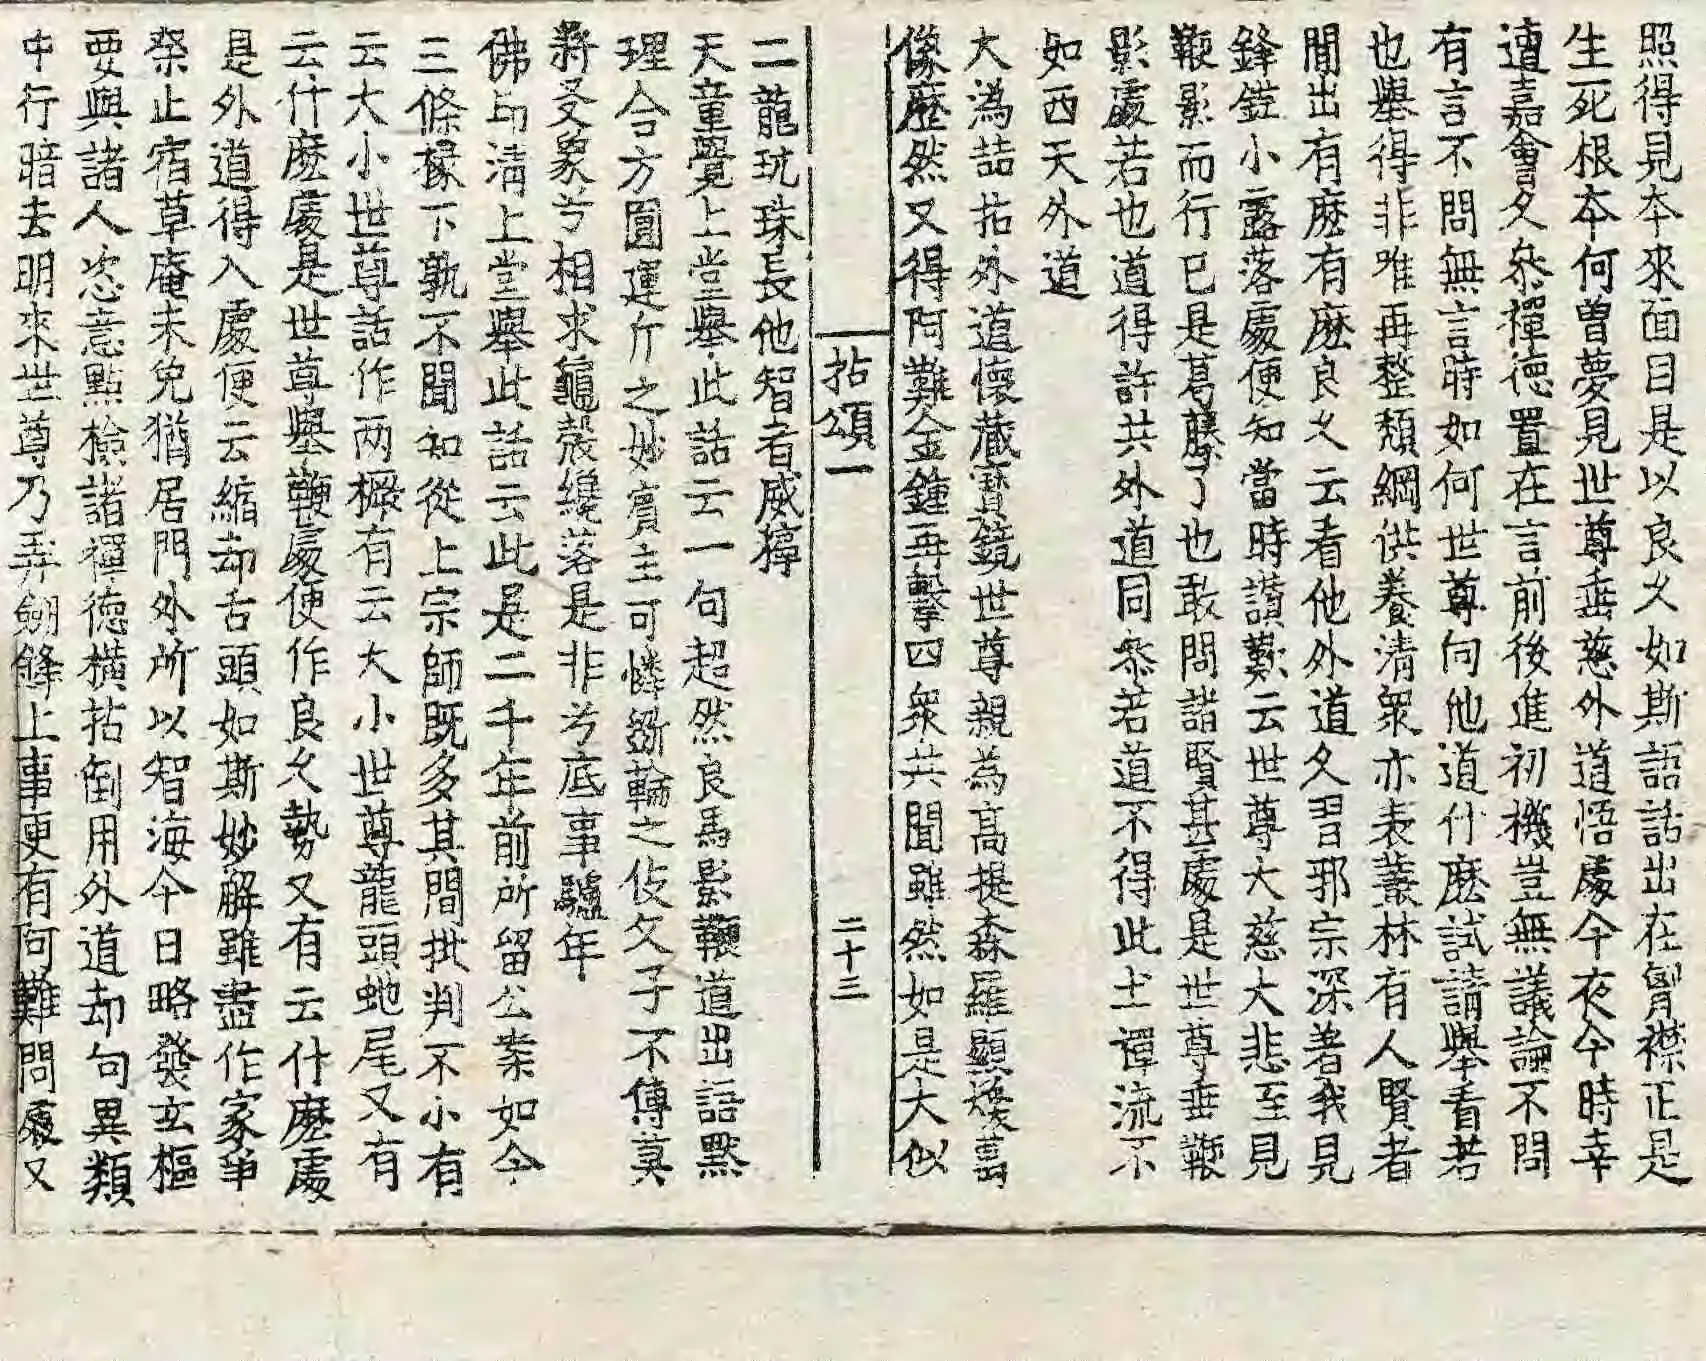 照得見本來面目是以良久如斯語話出在胷襟正是
生死根本何曽夢見世尊垂慈外道悟處今夜今時幸
遭嘉會久叅禪德置在言前後進初機豈無議論不問
有言不問無言時如何世尊向他道什麽試請舉看若
也舉得非唯再整頽綱供養清衆亦表叢林有人賢者
間出有麽有麽良久云看他外道久習邪宗深著我見
鋒鋩小露落處便知當時讃歎云世尊大慈大悲至見
鞭影而行已是葛藤了也敢問諸賢甚處是世尊垂鞭
影處若也道得許共外道同叅若道不得此土禪流不
如西天外道
大溈喆拈外道懷藏寶鏡世尊親為高提森羅顯煥萬
像歷然又得阿難金鍾再擊四衆共聞雖然如是大似
拈頌一
二十三
二龍玩珠長他智者威獰
天童覺上堂舉此話云一句超然良馬影鞭道出語默
理合方圓運斤之妙賓主可憐斵輪之伎父子不傳莫
將爻象兮相求龜殼纔落是非兮底事驢年
佛印清上堂舉此話云此是二千年前所留公案如今
三條椽下孰不聞知從上宗師既多其間批判不小有
云大小世尊話作两橛有云大小世尊龍頭虵尾又有
云什麽處是世尊舉鞭處便作良久勢又有云什麽處
是外道得入處便云縮却舌頭如斯妙解雖盡作家争
柰止宿草庵未免猶居門外所以智海今日略發玄樞
要與諸人恣意點檢諸禪德橫拈倒用外道却句異類
中行暗去明來世尊乃弄劒鋒上事更有阿難問處又